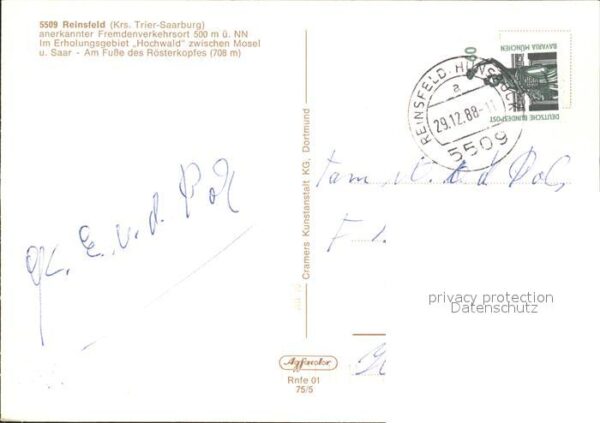 5509 Reinsfeld (Krs. Trier-Saarburg)
anerkannter Fremdenverkehrsort 500 m ü. NN
Im Erholungsgebiet „Hochwald" zwischen Mosel
u. Saar - Am Fuße des Rösterkopfes (708 m)
60
BAVARIA MÜNCHEN
DEUTSCHE BUNDESPOST
REINSFELD, HUNSRÜCK
a
29.12.88-11
5509
E. v. d. Pol
Fam. v. d. Pol
F
Cramers Kunstanstalt KG, Dortmund
privacy protection
Datenschutz
Agfacolor
Rnfe 01
75/5